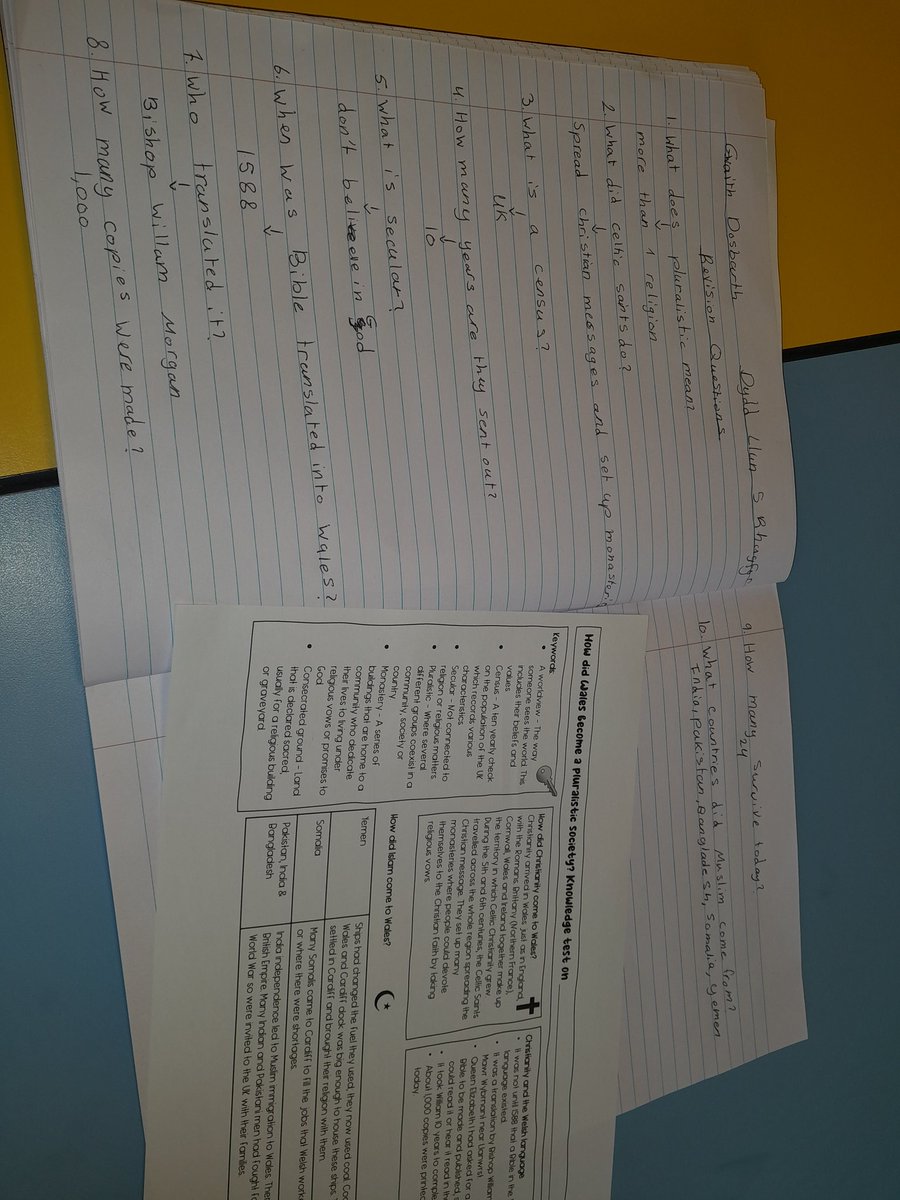 Gwaith Dosbarth
Dydd Llun 5 Rhagfyr
Revision Questions
1. What does pluralistic mean?
more than 1 religion
2. What did celtic saints do?
Spread christian messages and set up monasteris
3. What is a census?
UK
4. How many years are they sent out?
10
5. What is secular?
don't beliveele in God
6. When was Bible translated into Wales?
1588
7. Who translated it?
Bishop Willam Morgan
8. How many copies were made?
1,000
9. How many survive today?
24
10. What countries did Muslim come from?
India, Pakistan, Bangladesh, Somalia, Yemen
How did Wales become a pluralistic society? Knowledge test on
Keywords:
• A worldview - The way
someone sees the world. This
includes their beliefs and
values
• Census - A ten yearly check
on the population of the UK
which records various
characteristics
• Secular - Not connected to
religion or religious matters
• Pluralistic - Where several
different groups coexist in a
community, society or
country.
• Monastery - A series of
buildings that are home to a
community who dedicate
their lives to living under
religious vows or promises to
God
• Consecrated ground - Land
that is declared sacred,
usually for a religious building
or graveyard
How did Christianity come to Wales?
Christianity arrived in Wales, just as in England,
with the Romans. Brittany (Northern France),
Cornwall, Wales and Ireland together make up
the territory in which Celtic Christianity grew.
During the 5th and 6th centuries, the Celtic Saints
travelled across the whole region spreading the
Christian message. They set up many
monasteries where people could devote
themselves to the Christian faith by taking
religious vows.
Christianity and the Welsh language
• It was not until 1588 that a Bible in the
language existed.
• It was a translation by Bishop William
Mawr Wybrnant near Llanwrst
• Queen Elizabeth I had asked for a
Bible to be made and published,
could read it or hear it read in th
• It took William 10 years to comple
• About 1,000 copies were printe
today
How did Islam come to Wales?
Yemen
Ships had changed the fuel they used, they now used coal. Coa
Wales and Cardiff dock was big enough to house these ships.
settled in Cardiff and brought their religion with them.
Somalia
Many Somalis came to Cardiff to fill the jobs that Welsh work
or where there were shortages.
Pakistan, India &
Bangladesh
India independence led to Muslim immigration to Wales. The
British Empire. Many Indian and Pakistani men had fought f
World War so were invited to the UK with their families.